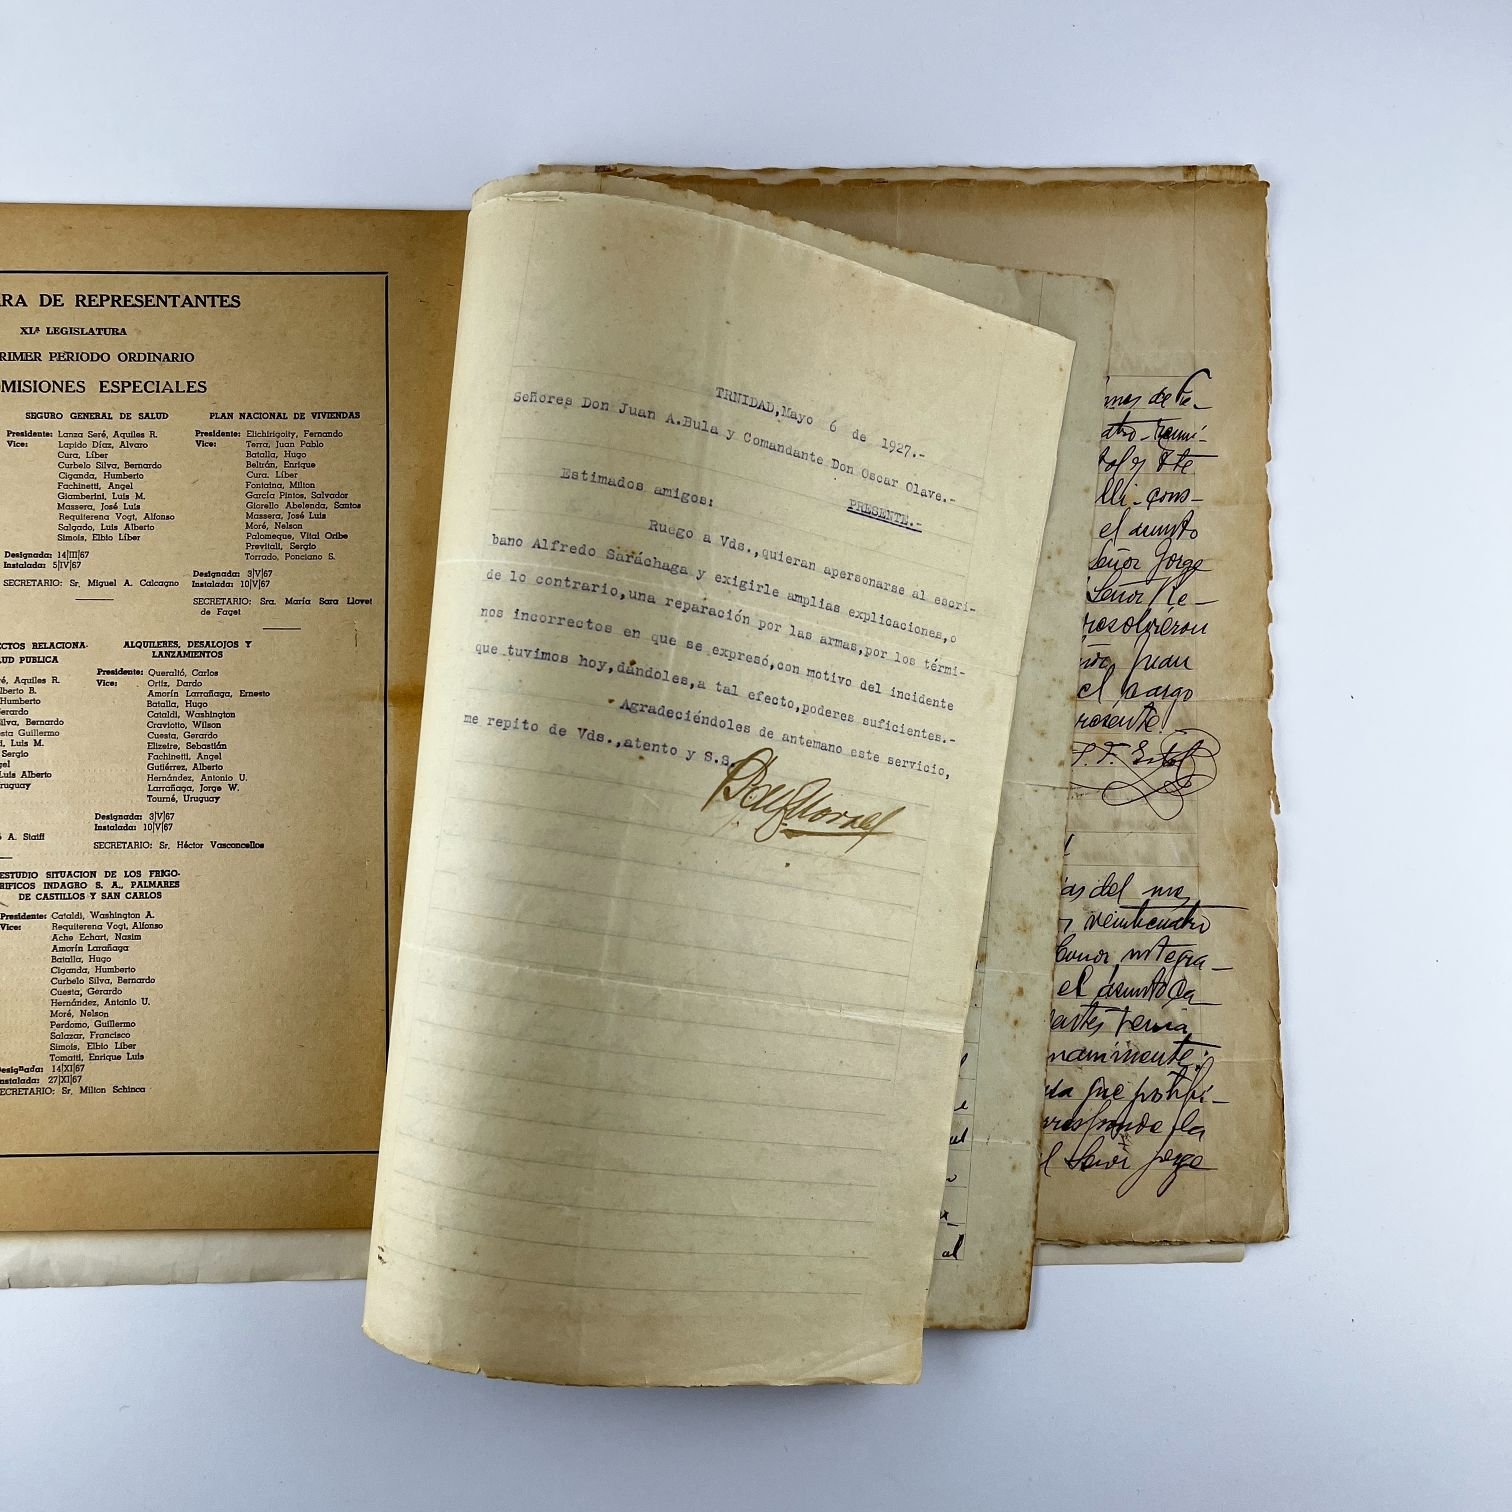 RA DE REPRESENTANTES
XLª LEGISLATURA
RIMER PERIODO ORDINARIO
MISIONES ESPECIALES
SEGURO GENERAL DE SALUD
Presidente: Lanza Seré, Aquiles R.
Vice: Lapido Díaz, Alvaro
Cura, Líber
Curbelo Silva, Bernardo
Ciganda, Humberto
Fachinetti, Angel
Giamberini, Luis M.
Massera, José Luis
Requiterena Vogt, Alfonso
Salgado, Luis Alberto
Simois, Elbio Líber
Designada: 14|III|67
Instalada: 5|IV|67
SECRETARIO: Sr. Miguel A. Calcagno
PLAN NACIONAL DE VIVIENDAS
Presidente: Elichirigoity, Fernando
Vice: Terra, Juan Pablo
Batalla, Hugo
Beltrán, Enrique
Cura, Líber
Fontaina, Milton
García Pintos, Salvador
Giorello Abelenda, Santos
Massera, José Luis
Moré, Nelson
Palomeque, Vital Oribe
Previtali, Sergio
Torrado, Ponciano S.
Designada: 3|V|67
Instalada: 10|V|67
SECRETARIO: Sra. María Sara Llovet
de Faget
CTOS RELACIONA-
LUD PUBLICA
é, Aquiles R.
lberto B.
Humberto
Gerardo
ilva, Bernardo
sta Guillermo
i, Luis M.
Sergio
gel
Luis Alberto
ruguay
A. Staiff
ALQUILERES, DESALOJOS Y
LANZAMIENTOS
Presidente: Queraltó, Carlos
Vice: Ortiz, Dardo
Amorín Larrañaga, Ernesto
Batalla, Hugo
Cataldi, Washington
Craviotto, Wilson
Cuesta, Gerardo
Elizeire, Sebastián
Fachinetti, Angel
Gutiérrez, Alberto
Hernández, Antonio U.
Larrañaga, Jorge W.
Tourné, Uruguay
Designada: 3|V|67
Instalada: 10|V|67
SECRETARIO: Sr. Héctor Vasconcellos
ESTUDIO SITUACION DE LOS FRIGO-
RIFICOS INDAGRO S. A., PALMARES
DE CASTILLOS Y SAN CARLOS
Presidente: Cataldi, Washington A.
Vice: Requiterena Vogt, Alfonso
Ache Echart, Nazim
Amorín Larañaga
Batalla, Hugo
Ciganda, Humberto
Curbelo Silva, Bernardo
Cuesta, Gerardo
Hernández, Antonio U.
Moré, Nelson
Perdomo, Guillermo
Salazar, Francisco
Simois, Elbio Líber
Tomatti, Enrique Luis
esignada: 14|XI|67
nstalada: 27|XI|67
ECRETARIO: Sr. Milton Schinca
TRNIDAD,Mayo 6 de 1927.-
Señores Don Juan A.Bula y Comandante Don Oscar Olave.-
PRESENTE.-
Estimados amigos:
Ruego a Vds.,quieran apersonarse al escri-
bano Alfredo Saráchaga y exigirle amplias explicaciones,o
de lo contrario,una reparación por las armas,por los térmi-
nos incorrectos en que se expresó,con motivo del incidente
que tuvimos hoy,dándoles,a tal efecto,poderes suficientes.-
Agradeciéndoles de antemano este servicio,
me repito de Vds.,atento y S.S.
el asunto
Señor Jorge
Señor Re-
resolvieron
Juan
el cargo
resente.
as del mes
veinticuatro
honor integra-
el asunto
artes
nanimente:
que
la
Señor Jorge
al